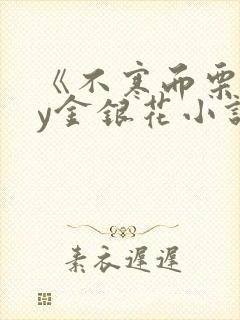 《不寒而栗
y金银花小说
素衣遲遲